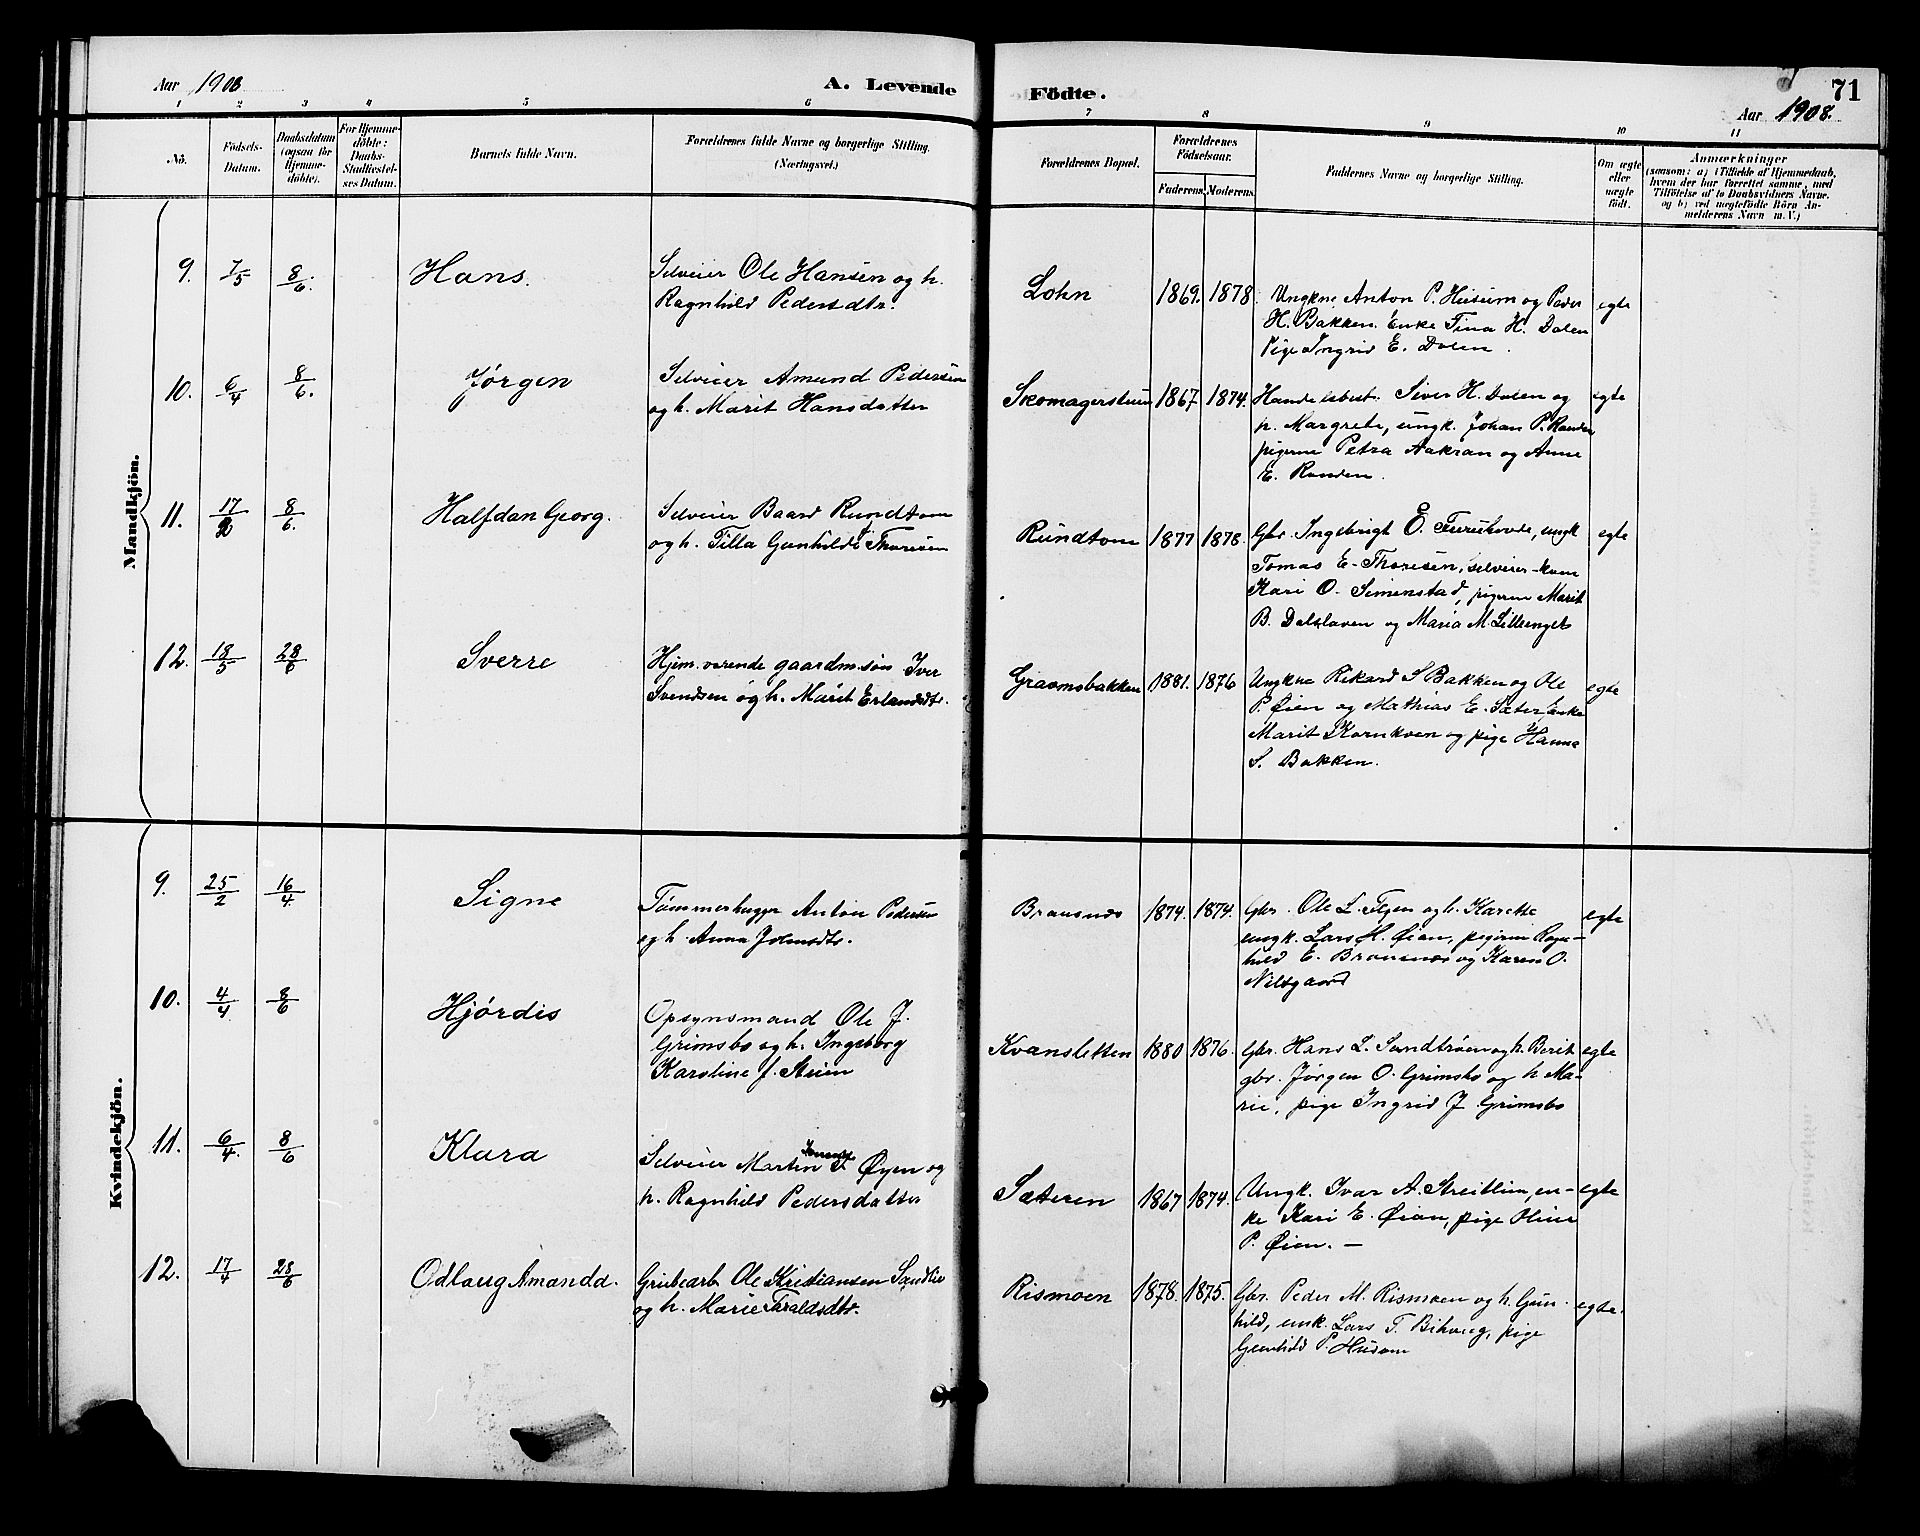 Aar 1908
A. Levende
Födte.
71
Aar 1908.
1 2 3 4 5 6
7 8 9 10 11
No.
Födsels-
Datum.
Daabsdatum
(ogsaa for
Hjemme-
döbte).
For Hjemme-
döbte:
Daabs-
Stadfæstel-
ses Datum.
Barnets fulde Navn.
Forældrenes fulde Navne og borgerlige Stilling.
(Næringsvei.)
Forældrenes Bopæl.
Forældrenes
Födselsaar.
Faderens. Moderens.
Faddernes Navne og borgerlige Stilling.
Om ægte
eller
uægte
födt.
Anmærkninger
(saasom: a) i Tilfælde af Hjemmedaab,
hvem der har forrettet samme, med
Tilföielse af to Daabsvidners Navne.
og b) ved uægtefödte Börn An-
melderens Navn m. V.)
Mandkjön.
9. 7/5 8/6. Hans.
Selveier Ole Hansen og h.
Ragnhild Pedersdtr.
Lohn 1869. 1878.
Ungkne Anton P. Husum og Peder
H. Bakken. Enke Tina H. Dalen
Pige Ingrid E. Dalen.
egte
10. 6/4 8/6. Jørgen
Selveier Amund Pedersen
og h. Marit Hansdatter
1867 1874.
Handelsbest. Siver H. Dalen og
h. Margrete, ungk. Johan P. Randen
pigerne Petra Aakran og Anne
E. Randen.
egte
11. 17/2 8/6. Halfdan Georg.
Selveier Baard Rundtom
og h. Tilla Gunhilde Thoresen
Rundtom 1877 1878.
Gbr. Ingebrigt E. Furuhovde, ungk
Tomas E. Thoresen, selveier-kone
Kari O. Simenstad, pigerne Marit
B. Dalslaven og Maria M. Lilleenget
egte
12. 18/5 28/6 Sverre
Hjem.værende gaardm.søn Iver
Svendsen og h. Marit Erlandsdtr.
Gravmsbakken 1881. 1876
Ungkne Rikard S Bakken og Ole
P. Øien og Mathias E. Sæter Enke
Marit Kornkven og pige Hanna
S. Bakken.
egte
Kvindekjön.
9. 25/2 16/4 Signe
Tømmerhugger Anton Pedersen
og h. Anna Johnsdtr.
Brausnæs 1874. 1874.
Gbr. Ole L. Flyen og h. Karette
ungk. Lars H. Øian, pigerne Ragn-
hild E. Brausnæs og Karen O.
Nilsgaard
egte
10. 4/4 8/6 Hjørdis
Opsynsmand Ole J.
Grimsbo og h. Ingeborg
Karoline f. Steien
Kvansletten 1880 1876.
Gbr. Hans L. Sandtrøen og h. Berit
gbr. Jørgen O. Grimsbo og h Ma-
rie, pige Ingrid J Grimsbo
egte
11. 6/4. 8/6 Klara
Selveier Martin T Øyen og
h. Ragnhild Pedersdatter
Sæteren 1867 1874.
Ungk. Ivar A. Streitlien, en-
ke Kari E. Øian, pige Oline
P. Øien. —
egte
12. 17/4 28/6 Odlaug Amanda.
Grubearb Ole Kristiansen Sandlie
og h. Marie Taraldsdtr.
Rismoen 1878. 1875.
Gbr. Peder M. Rismoen og h. Gun-
hild, unk. Lars T. Bihaug, pige
Gunhild P. Husom
egte.